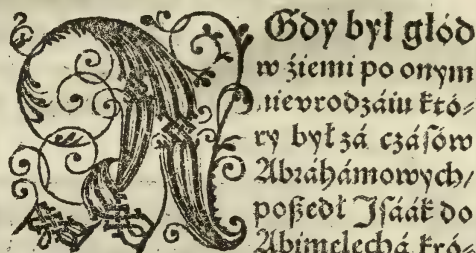 A Gdy był głód
w ziemi po onym
nievrodzáiu któ⸗
ry był zá czásów
Abráhámowych/
poszedł Jsáák do
Abimelechá kró⸗